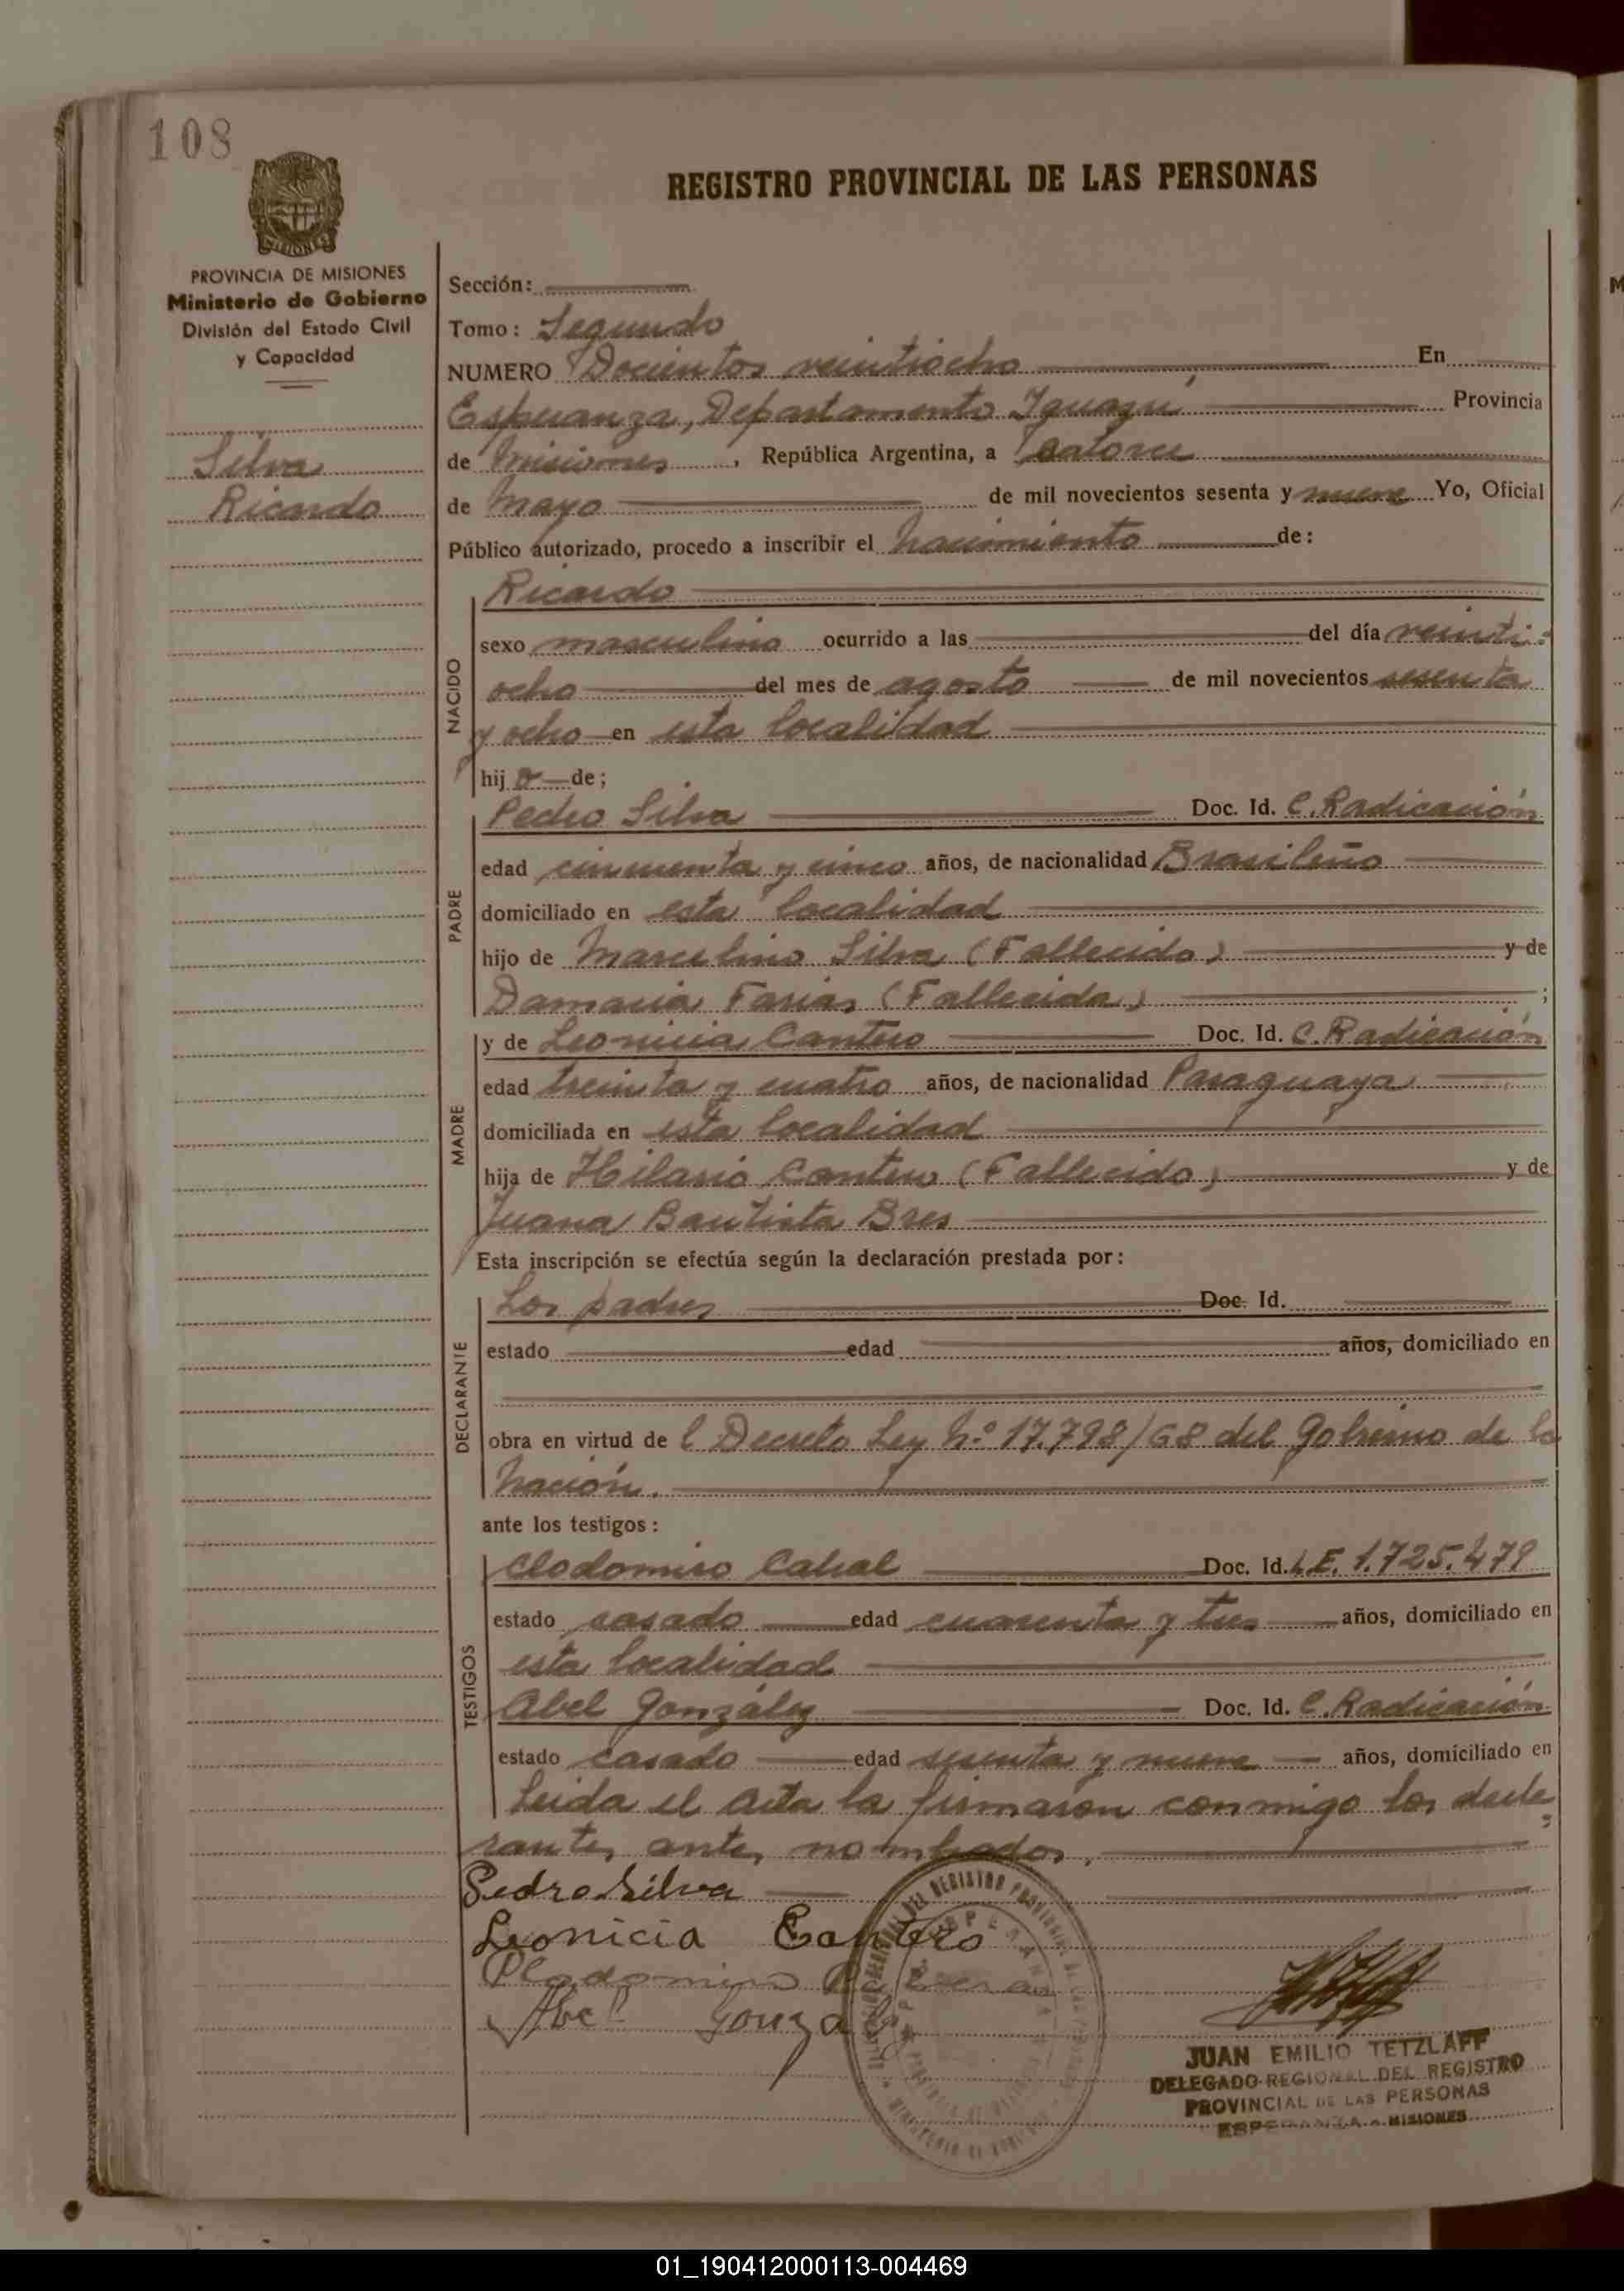 108
REGISTRO PROVINCIAL DE LAS PERSONAS
MISIONES
PROVINCIA DE MISIONES
Ministerio de Gobierno
División del Estado Civil
y Capacidad
Silva
Ricardo
Sección:
Tomo: Segundo
NUMERO Docientos veintiocho En
Esperanza, Departamento Iguazú, Provincia
de Misiones, República Argentina, a catorce
de Mayo de mil novecientos sesenta y nueve Yo, Oficial
Público autorizado, procedo a inscribir el Nacimiento de:
NACIDO
Ricardo
sexo masculino ocurrido a las del día veinti-
ocho del mes de agosto de mil novecientos sesenta
y ocho en esta localidad
hij o de;
PADRE
Pedro Silva Doc. Id. C. Radicación
edad cincuenta y cinco años, de nacionalidad Brasileño
domiciliado en esta localidad
hijo de Marcelino Silva (Fallecido) y de
Damacia Farias (Fallecida) ;
MADRE
y de Leonicia Cantero Doc. Id. C. Radicación
edad treinta y cuatro años, de nacionalidad Paraguaya
domiciliada en esta localidad
hija de Hilario Cantero (Fallecido) y de
Juana Bautista Bres
Esta inscripción se efectúa según la declaración prestada por:
DECLARANTE
Los padres Doc. Id.
estado edad años, domiciliado en
obra en virtud de l Decreto Ley Nº 17.798/68 del Gobierno de la
Nación.
ante los testigos:
TESTIGOS
Clodomiro Cabral Doc. Id. L.E. 1.725.479
estado casado edad cuarenta y tres años, domiciliado en
esta localidad
Abel González Doc. Id. C. Radicación
estado casado edad sesenta y nueve años, domiciliado en
Leida el Acta la firmaron conmigo los decla-
rantes antes nombrados.
Pedro Silva
Leonicia Cantero
Abel Gonza
JUAN EMILIO TETZLAFF
DELEGADO REGIONAL DEL REGISTRO
PROVINCIAL DE LAS PERSONAS
ESPERANZA - MISIONES
01_190412000113-004469